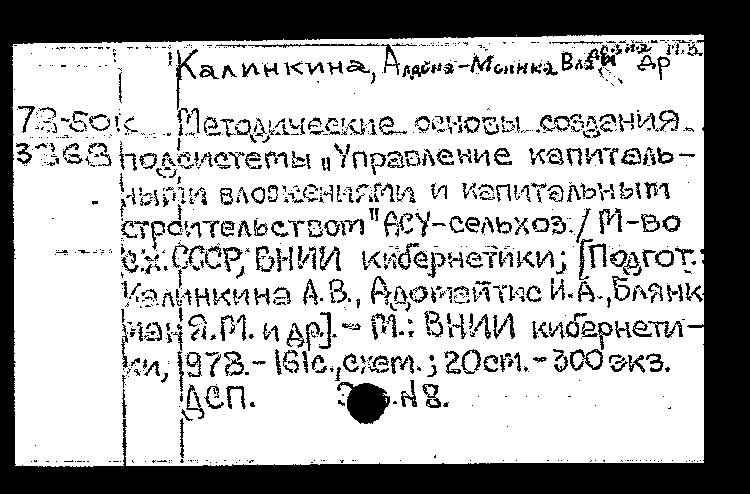 Калинкина, Алдона-Моника Вла
78-50к Методические основы создания
3368 подсистемы „Управление капиталь-
ными вложениями и капитальным
строительством" АСУ-сельхоз. / М-во
с.х. СССР, ВНИИ кибернетики; [Подгот.:
Калинкина А.В., Адомайтис И.А., Блянк-
ман Я.М. и др]. - М.: ВНИИ кибернети-
ки, 1978. - 161с., схем.; 20см. - 300 экз.
ДСП. N8.